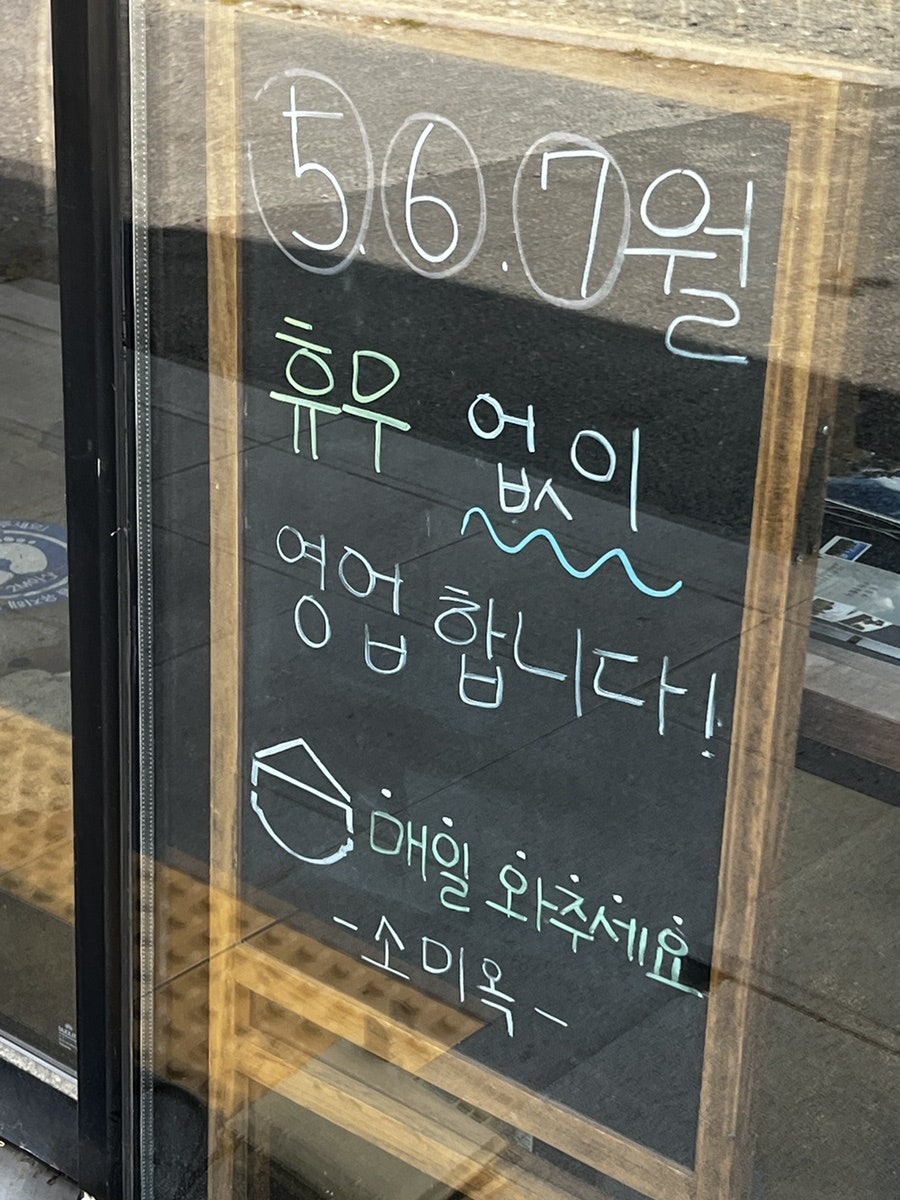 5.6.7월
휴무 없이
영업 합니다!
매일 와주세요
-소미옥-